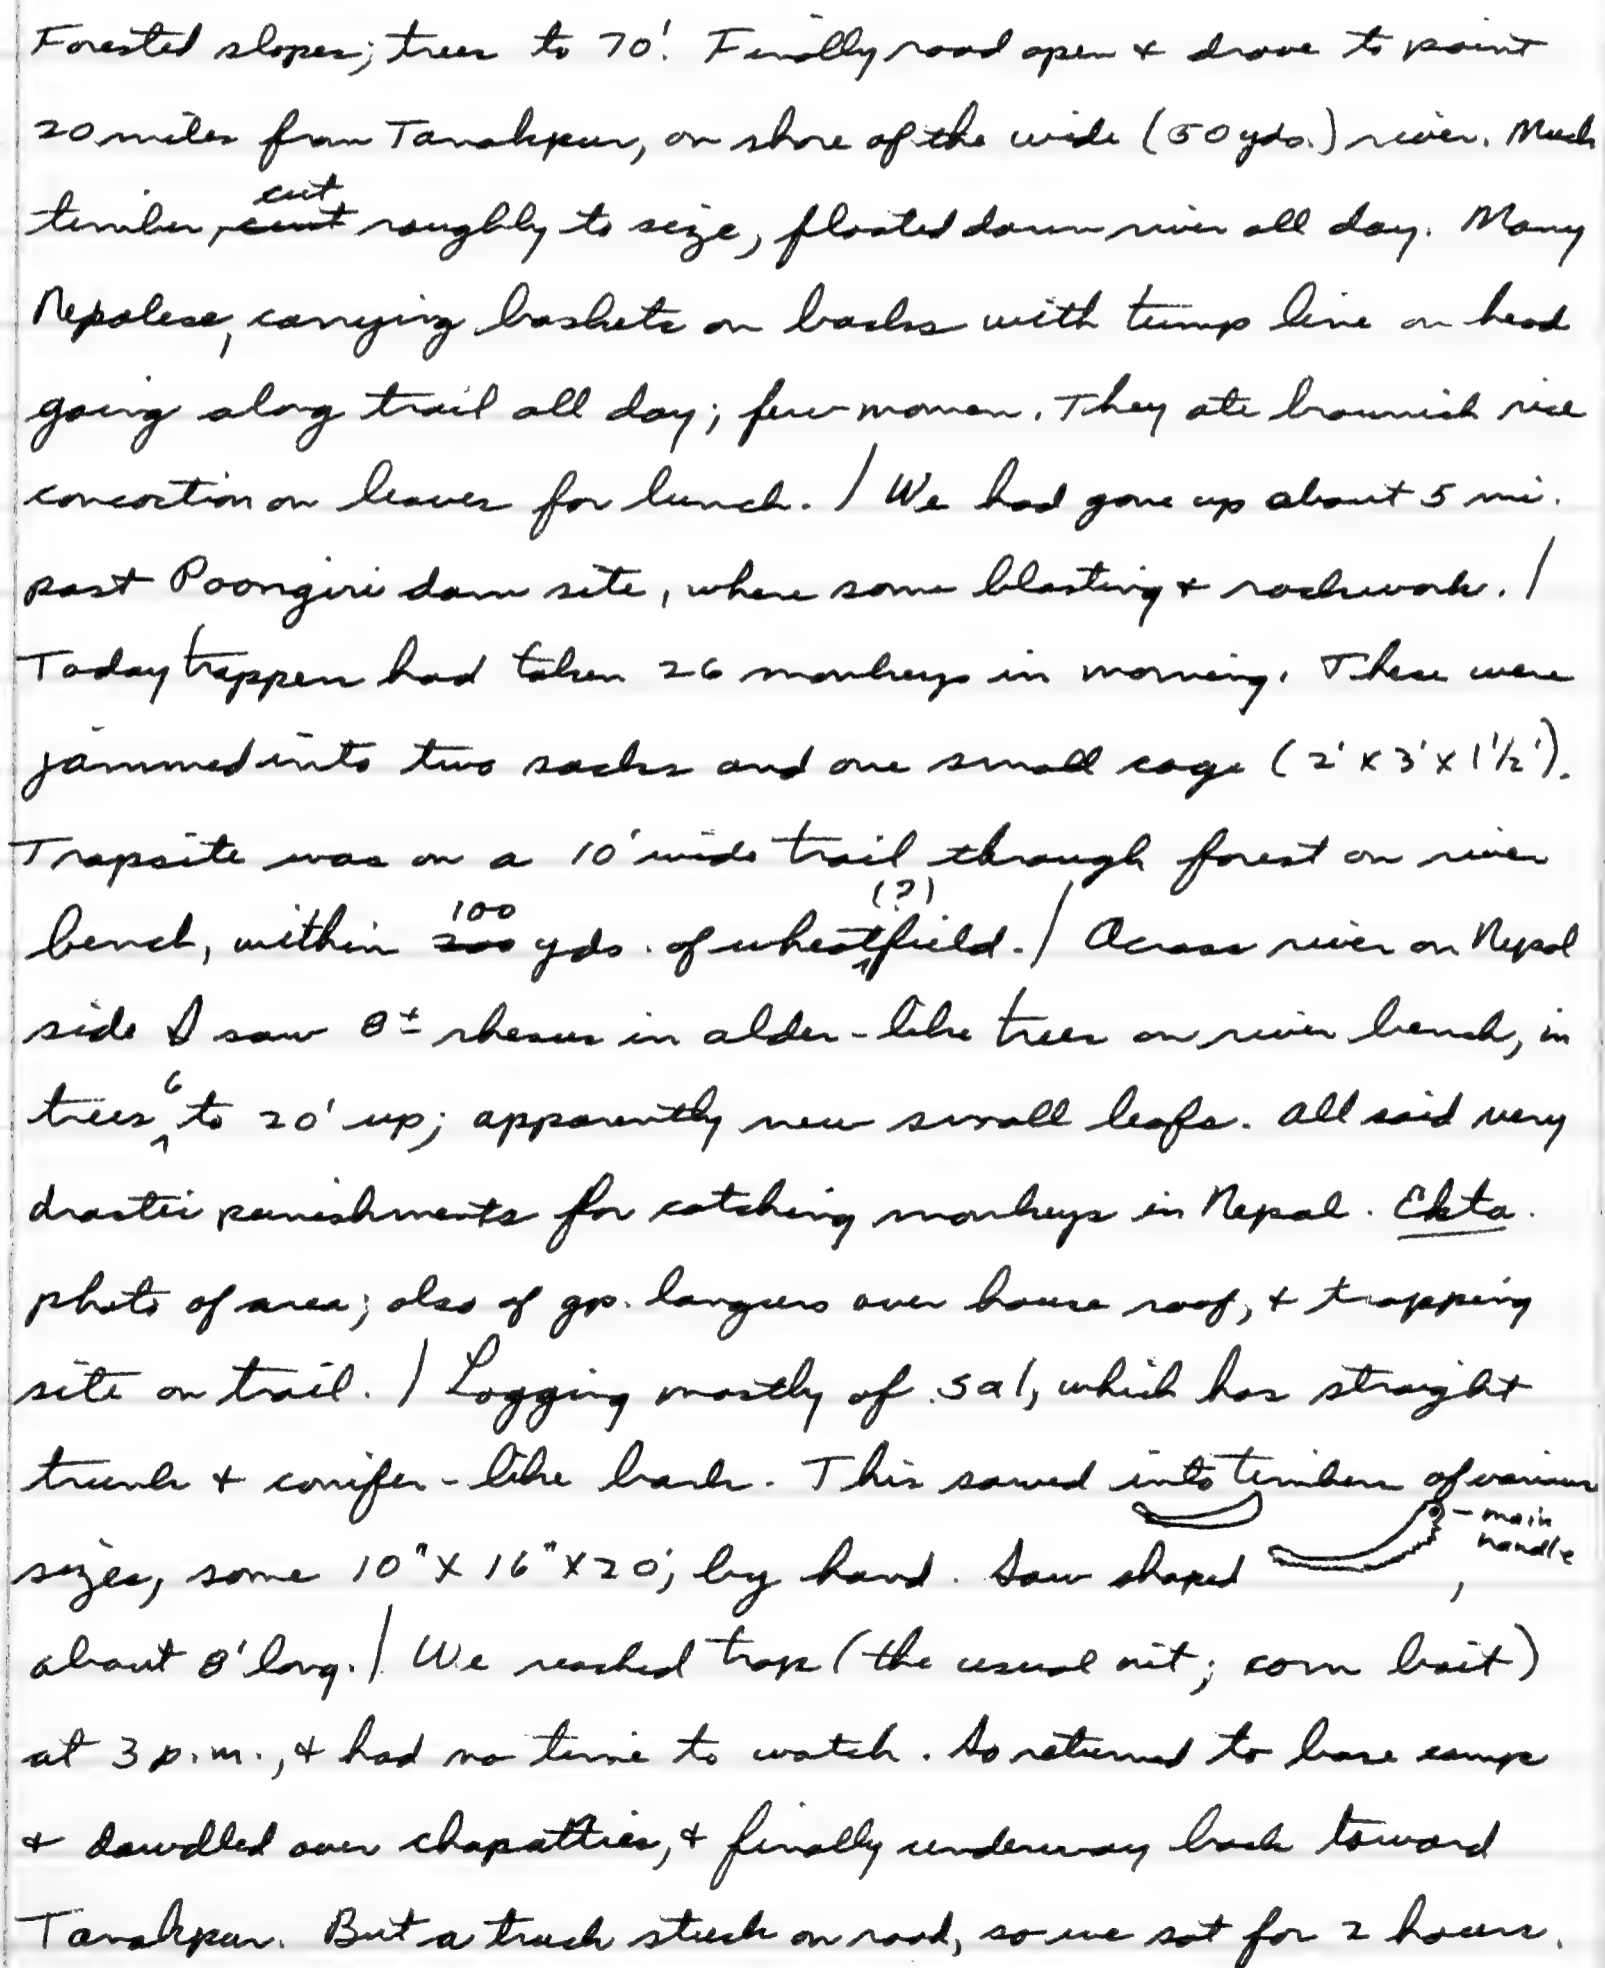 Forested slopes; trees to 70'. Finally road open & drove to point
20 miles from Tanakpur, on shore of the wide (50 yds.) river. Much
timber, cut roughly to size, floated down river all day. Many
Nepalese, carrying baskets on backs with tump line on head
going along trail all day; few women. They ate brownish rice
concoction on leaves for lunch. / We had gone up about 5 mi.
past Poongiri dam site, where some blasting & rockwork. /
Today trappers had taken 26 monkeys in morning. These were
jammed into two sacks and one small cage (2' x 3' x 1 1/2').
Trapsite was on a 10' wide trail through forest on river
bench, within 100 yds. of wheat (?) field. / Across river on Nepal
side I saw 8± rhesus in alder-like trees on river bench, in
trees 6 to 20' up; apparently new small leafs. All said very
drastic punishments for catching monkeys in Nepal. Ekta.
photo of area; also of gp. langurs over house roof, & trapping
site on trail. / Logging mostly of sal, which has straight
trunk & conifer-like bark. This sawed into timbers of various
sizes, some 10" x 16" x 20', by hand. Saw shaped ,
main
handle
about 8' long. / We reached trap (the usual ; corn bait)
at 3 p.m., & had no time to watch. So returned to base camp
& dawdled over chapatties, & finally underway back toward
Tanakpur. But a truck stuck on road, so we sat for 2 hours.